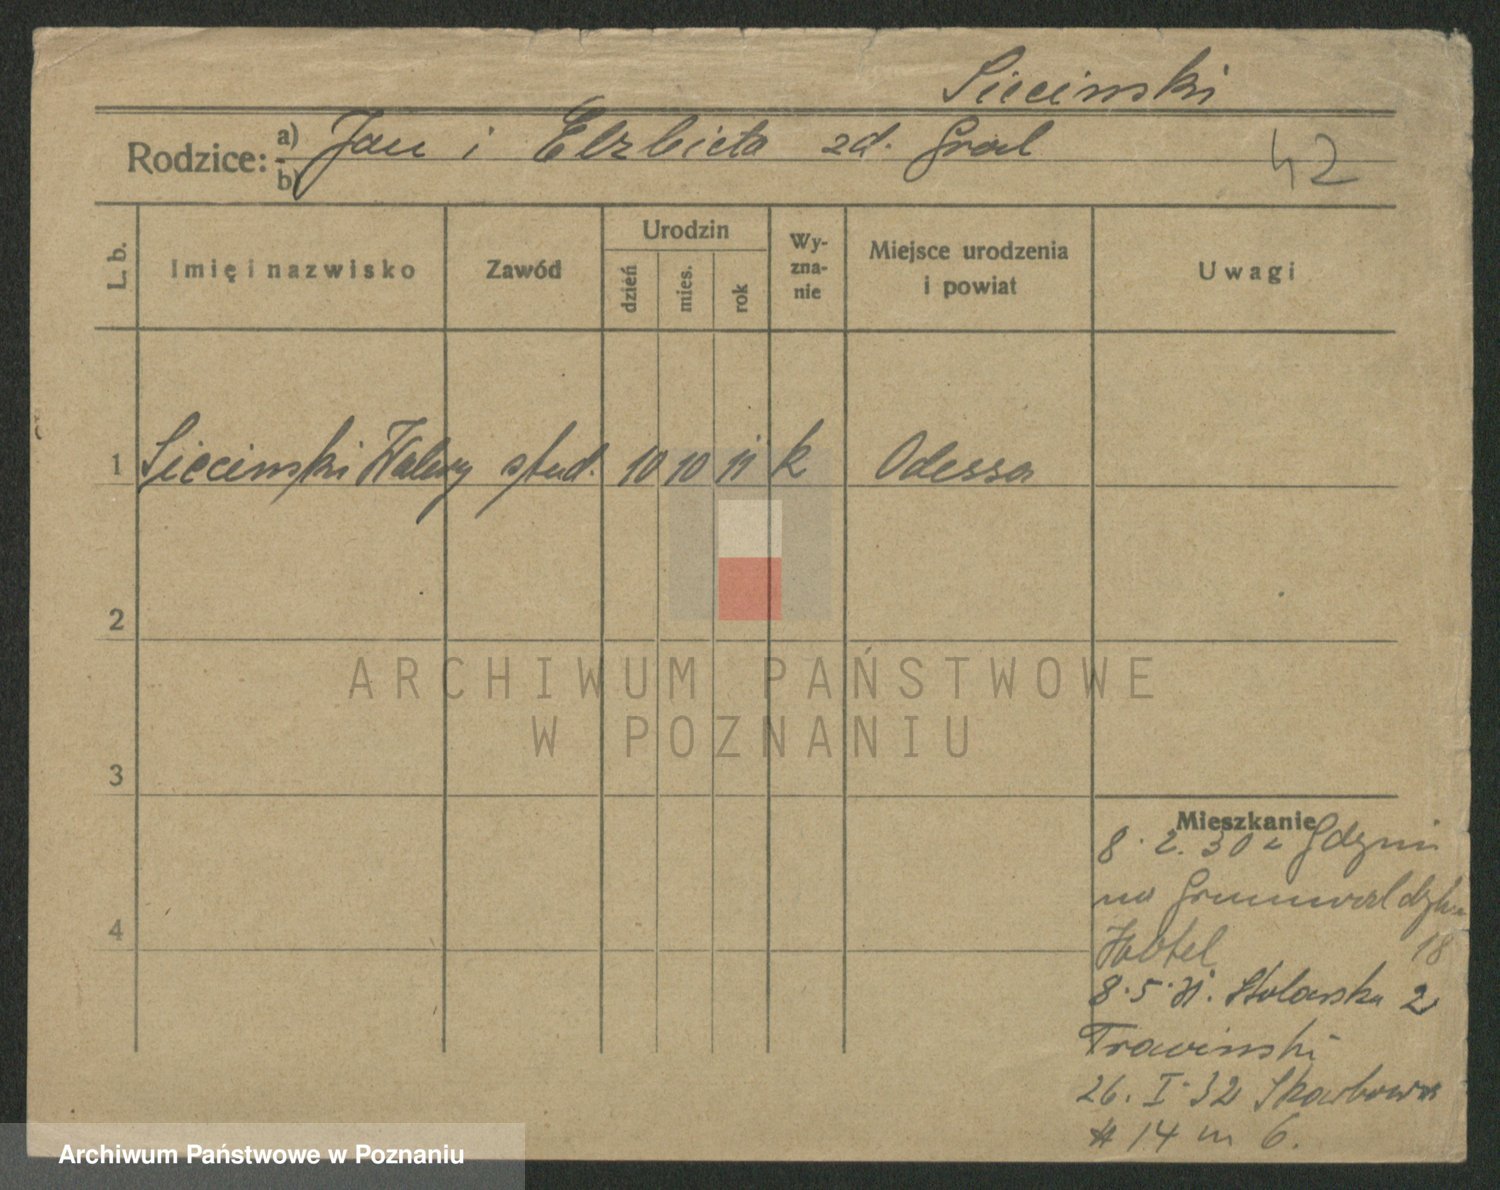 Siecinski
Rodzice: a) b) Jan i Elzbieta zd. Gral
42
L. b.
Imię i nazwisko
Zawód
Urodzin
dzień
mies.
rok
Wy-
zna-
nie
Miejsce urodzenia
i powiat
Uwagi
1 Siecinski Walery stud. 10 10 11 k Odessa
2
3
4
Mieszkanie
8. 2. 30 z Gdyni
na Grunwaldzka
Hotel 18
8.5.31. Stolarska 2
Trawinski
26. I. 32 Skarbowa
14 m 6.
ARCHIWUM PAŃSTWOWE
W POZNANIU
Archiwum Państwowe w Poznaniu